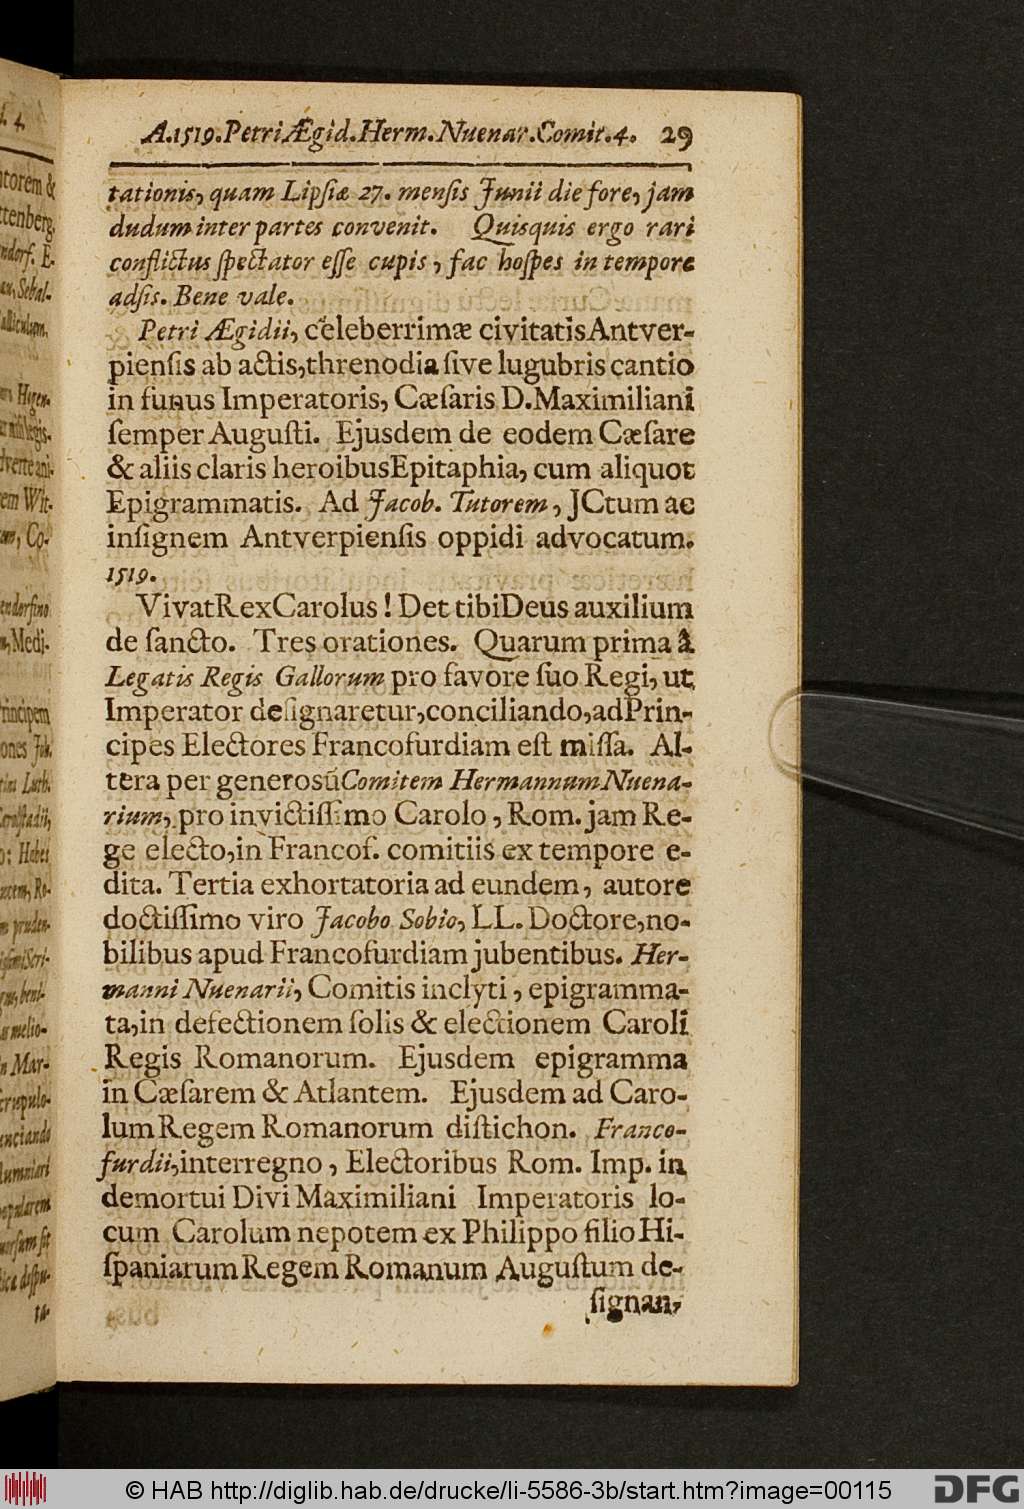 A. 1519. Petri Ægid. Herm. Nuenar. Comit. 4. 29
tationis, quam Lipſiæ 27. menſis Junii die fore, jam
dudum inter partes convenit. Quisquis ergo rari
conflictus ſpectator eſſe cupis, fac hoſpes in tempore
adſis. Bene vale.
Petri Ægidii, celeberrimæ civitatis Antver-
pienſis ab actis, threnodia ſive lugubris cantio
in funus Imperatoris, Cæſaris D. Maximiliani
ſemper Auguſti. Ejusdem de eodem Cæſare
& aliis claris heroibus Epitaphia, cum aliquot
Epigrammatis. Ad Jacob. Tutorem, JCtum ac
inſignem Antverpienſis oppidi advocatum.
1519.
Vivat Rex Carolus! Det tibi Deus auxilium
de ſancto. Tres orationes. Quarum prima à
Legatis Regis Gallorum pro favore ſuo Regi, ut
Imperator deſignaretur, conciliando, ad Prin-
cipes Electores Francofurdiam eſt miſſa. Al-
tera per generosū Comitem Hermannum Nuena-
rium, pro invictiſſimo Carolo, Rom. jam Re-
ge electo, in Francof. comitiis ex tempore e-
dita. Tertia exhortatoria ad eundem, autore
doctiſſimo viro Jacobo Sobio, LL. Doctore, no-
bilibus apud Francofurdiam jubentibus. Her-
manni Nuenarii, Comitis inclyti, epigramma-
ta, in defectionem ſolis & electionem Caroli
Regis Romanorum. Ejusdem epigramma
in Cæſarem & Atlantem. Ejusdem ad Caro-
lum Regem Romanorum diſtichon. Franco-
furdii, interregno, Electoribus Rom. Imp. in
demortui Divi Maximiliani Imperatoris lo-
cum Carolum nepotem ex Philippo filio Hi-
ſpaniarum Regem Romanum Auguſtum de-
ſignan-
© HAB http://diglib.hab.de/drucke/li-5586-3b/start.htm?image=00115
DFG